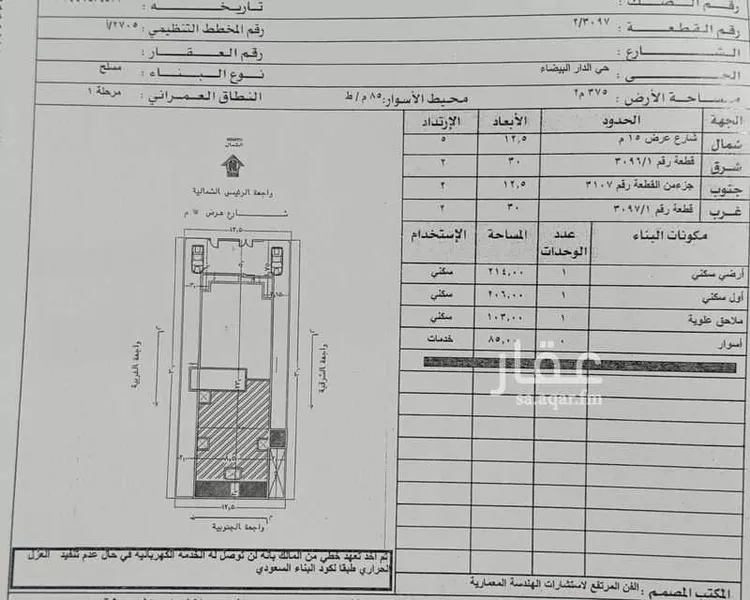 رقم الصك :
تاريخه :
رقم القطعة : ٢/٣٠٩٧
رقم المخطط التنظيمي : ٢٧٠٥/أ
الشارع :
رقم العقار :
الحي : حي الدار البيضاء
نوع البناء : مسلح
مساحة الأرض : ٣٧٥ م٢
محيط الأسوار: ٨٥ م/ط
النطاق العمراني : مرحلة ١
الجهة الحدود الأبعاد الإرتداد
شمال شارع عرض ١٥ م ١٢,٥ ٥
شرق قطعة رقم ٣٠٩٦/١ ٣٠ ٢
جنوب جزءمن القطعة رقم ٣١٠٧ ١٢,٥ ٢
غرب قطعة رقم ٣٠٩٧/١ ٣٠ ٢
مكونات البناء عدد الوحدات المساحة الإستخدام
أرضي سكني ١ ٢١٤,٠٠ سكني
أول سكني ١ ٢٠٦,٠٠ سكني
ملاحق علوية ١ ١٠٣,٠٠ سكني
أسوار ٠ ٨٥,٠٠ خدمات
عقار
sa.aqar.fm
الشمال
واجهة الرئيسي الشمالية
شارع عرض ١٥ م
١٢,٥
واجهة الغربية
واجهة الشرقية
١٢,٥
واجهة الجنوبية
تم اخذ تعهد خطي من المالك بانه لن توصل له الخدمة الكهربائيه في حال عدم تنفيذ العزل
الحراري طبقا لكود البناء السعودي
المكتب المصمم : الفن المرتفع لاستشارات الهندسة المعمارية